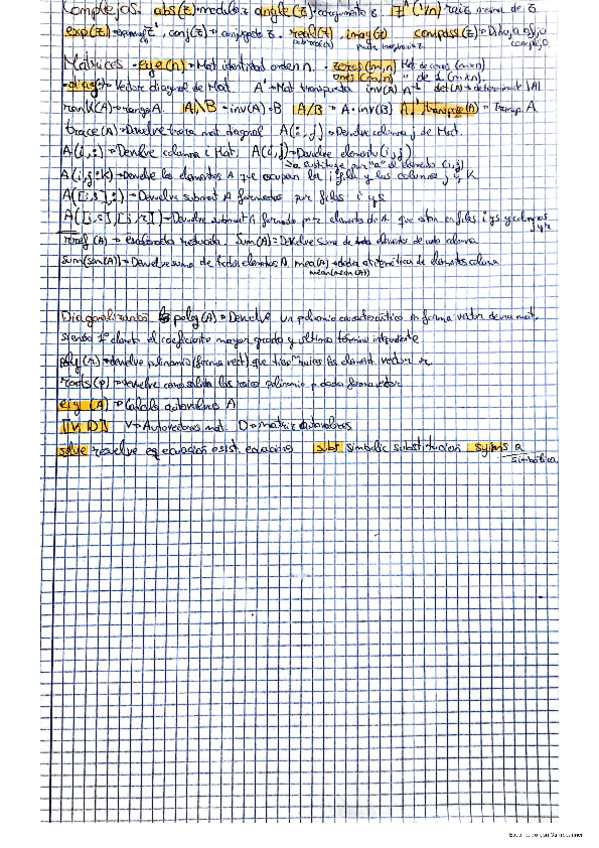 Complejos. abs(z) → modulo z angle(z) → argumento z z^(1/n) raiz n de z
exp(z) → , conj(z) → conjugado z. real(z), imag(z) compass(z) → Dibuja aflijo
parte imaginaria z complejo.
Matrices - eye(n) → Mat identidad orden n. - zeros(m,n) Mat de ceros (mxn)
ones(m,n) " de 1 (mxn).
- diag → Vector diagonal de Mat. A' → Mat transpuesta inv(A) A^-1 det(A) → determinante |A|
rank(A) → rango A. A\B → inv(A) * B A/B → A * inv(B) A', transpose(A) → transp. A
trace(A) → Devuelve traza mat diagonal A(:,j) → Devuelve columna j de Mat.
A(i,:) → Devuelve columna i Mat. A(i,j) → Devuelve elemento (i,j)
→ a sustituye por "a" el elemento (i,j)
A(i,j:k) → Devuelve los elementos A que ocupan la i fila y las columnas j y k
A([i,s],:) → Devuelve submat A formada por filas i y s
A([i,s],[j,r]) → Devuelve submat A formada por elementos de A que estan en filas i y s y columnas
j y r
rref(A) → escalonada reducida. Sum(A) = Devuelve suma de elementos de cada columna
sum(sum(A)) → Devuelve suma de todos elementos A. mea(A) → media aritmética de elementos columna
mean(mean(A))
Diagonalización poly(A) → Devuelve un polinomio característico en forma vector de una mat,
siendo 1º element el coeficiente mayor grado y ultimo término independiente
poly(r) → devuelve polinomio (forma vect) que tiene raices los element. vector r
roots(p) → devuelve como salida las raices polinomio p dada forma vector
eig(A) → Calcula autovalores A
[V,D] V → Autovectores mat. D → matriz autovalores
solve resuelve eq ecuacion o sist. ecuaciones subs simbolic substitucion syms a
simbolica